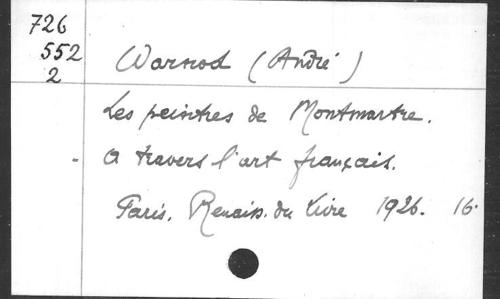 726
552
2
Warnod (André)
Les peintres de Montmartre.
A travers l'art français.
Paris. Renaiss. du Livre 1926. 16°